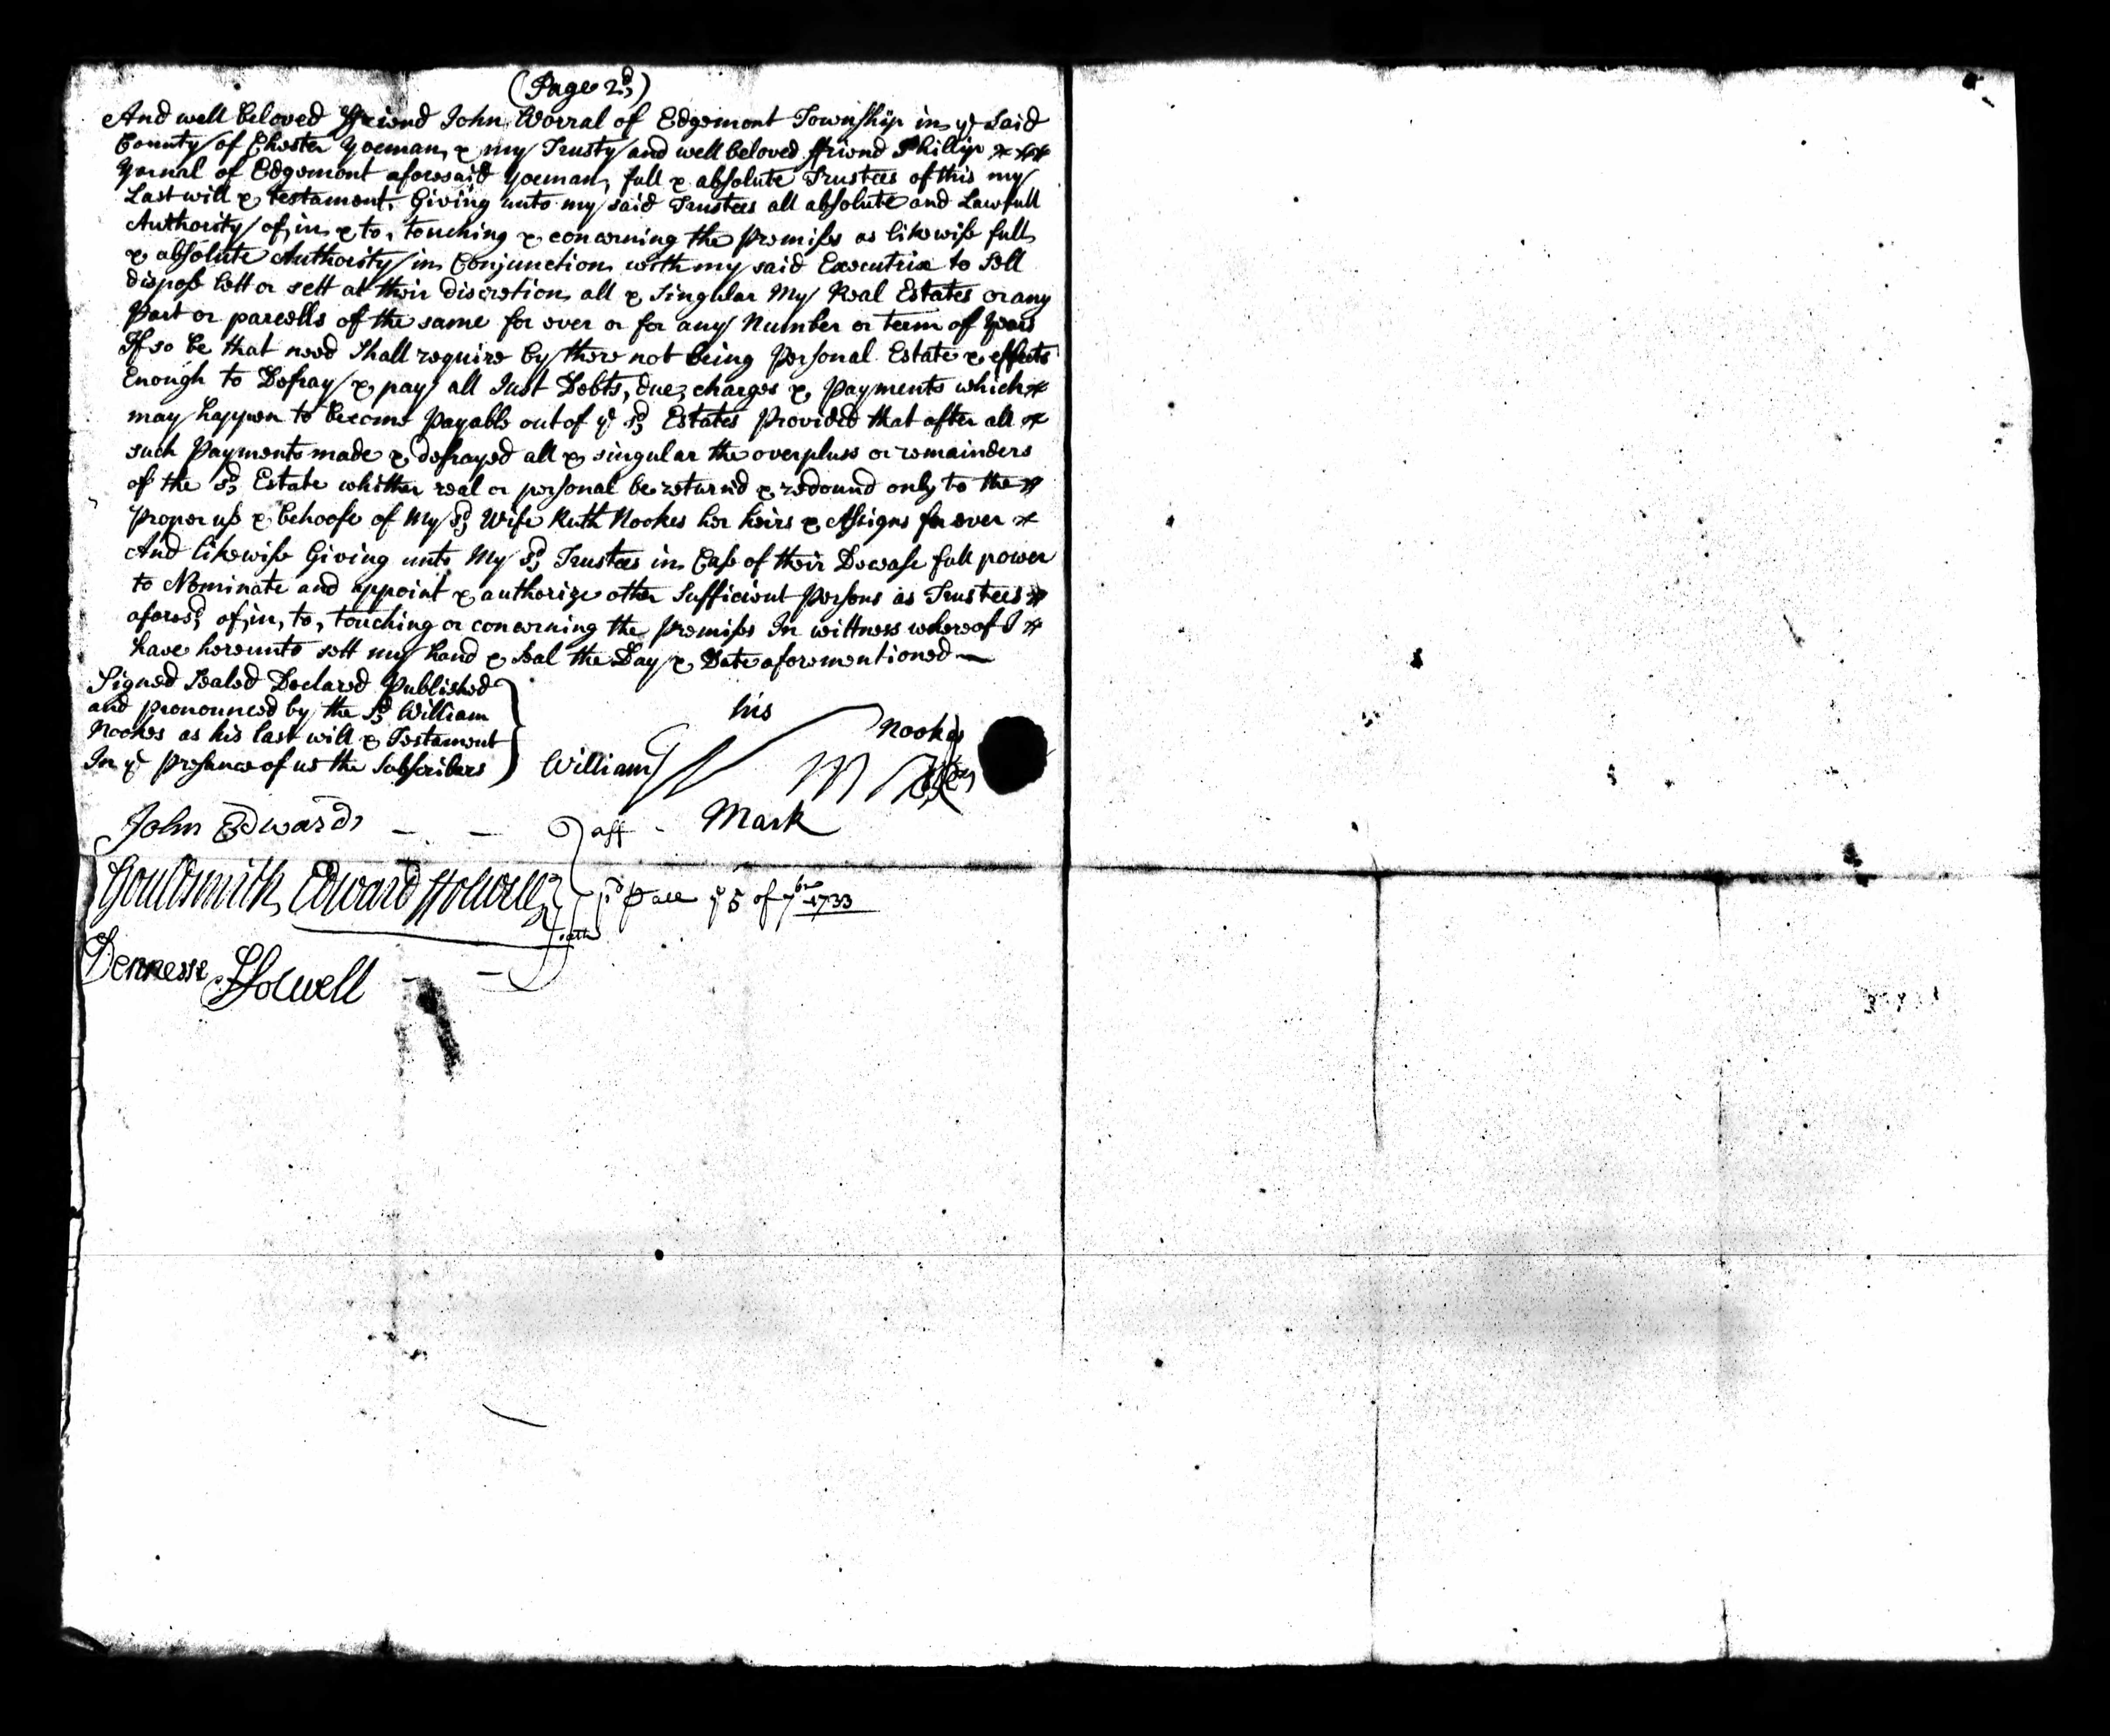 (Page 2d)
And well beloved ffriend John Worral of Edgemont Township in ye said
County of Chester Yoeman, & my Trusty and well beloved ffriend Phillip
Yarnal of Edgemont aforesaid yoeman, full & absolute Trustees of this my
Last will & testament, Giving unto my said Trustees all absolute and Lawfull
Authority of, in, & to, touching & concerning the premises as likewise full
& absolute Authority in Conjunction with my said Executrix to Sell
dispose lett or sett at their discretion all & singular My Real Estates or any
Part or parcells of the same for ever or for any Number or term of Years
If so be that need shall require by there not being Personal Estate & effects
Enough to Defray & pay all Just Debts, dues, charges & Payments which
may happen to become Payable out of ye sd Estates Provided that after all
such Payments made & defrayed all & singular the overpluss or remainders
of the sd Estate whither real or personal be returnd & redound only to the
Proper use & behoofe of My sd Wife Ruth Nookes her heirs & Assigns for ever
And likewise Giving unto My sd Trustees in Case of their Decease full power
to Nominate and appoint & authorize other Sufficient Persons as Trustees
aforesd of, in, to, touching or concerning the premises In wittness whereof I
have hereunto sett my hand & seal the Day & Date aforementioned —
Signed Sealed Declared Published
and pronounced by the sd William
Nookes as his last will & Testament
In ye presence of us the Subscribers
his
William Nookes
Mark
John Edwards — — aff
Gouldsmith Edward ffolwell
ye 5 of 7br 1733
Dennesse ffolwell